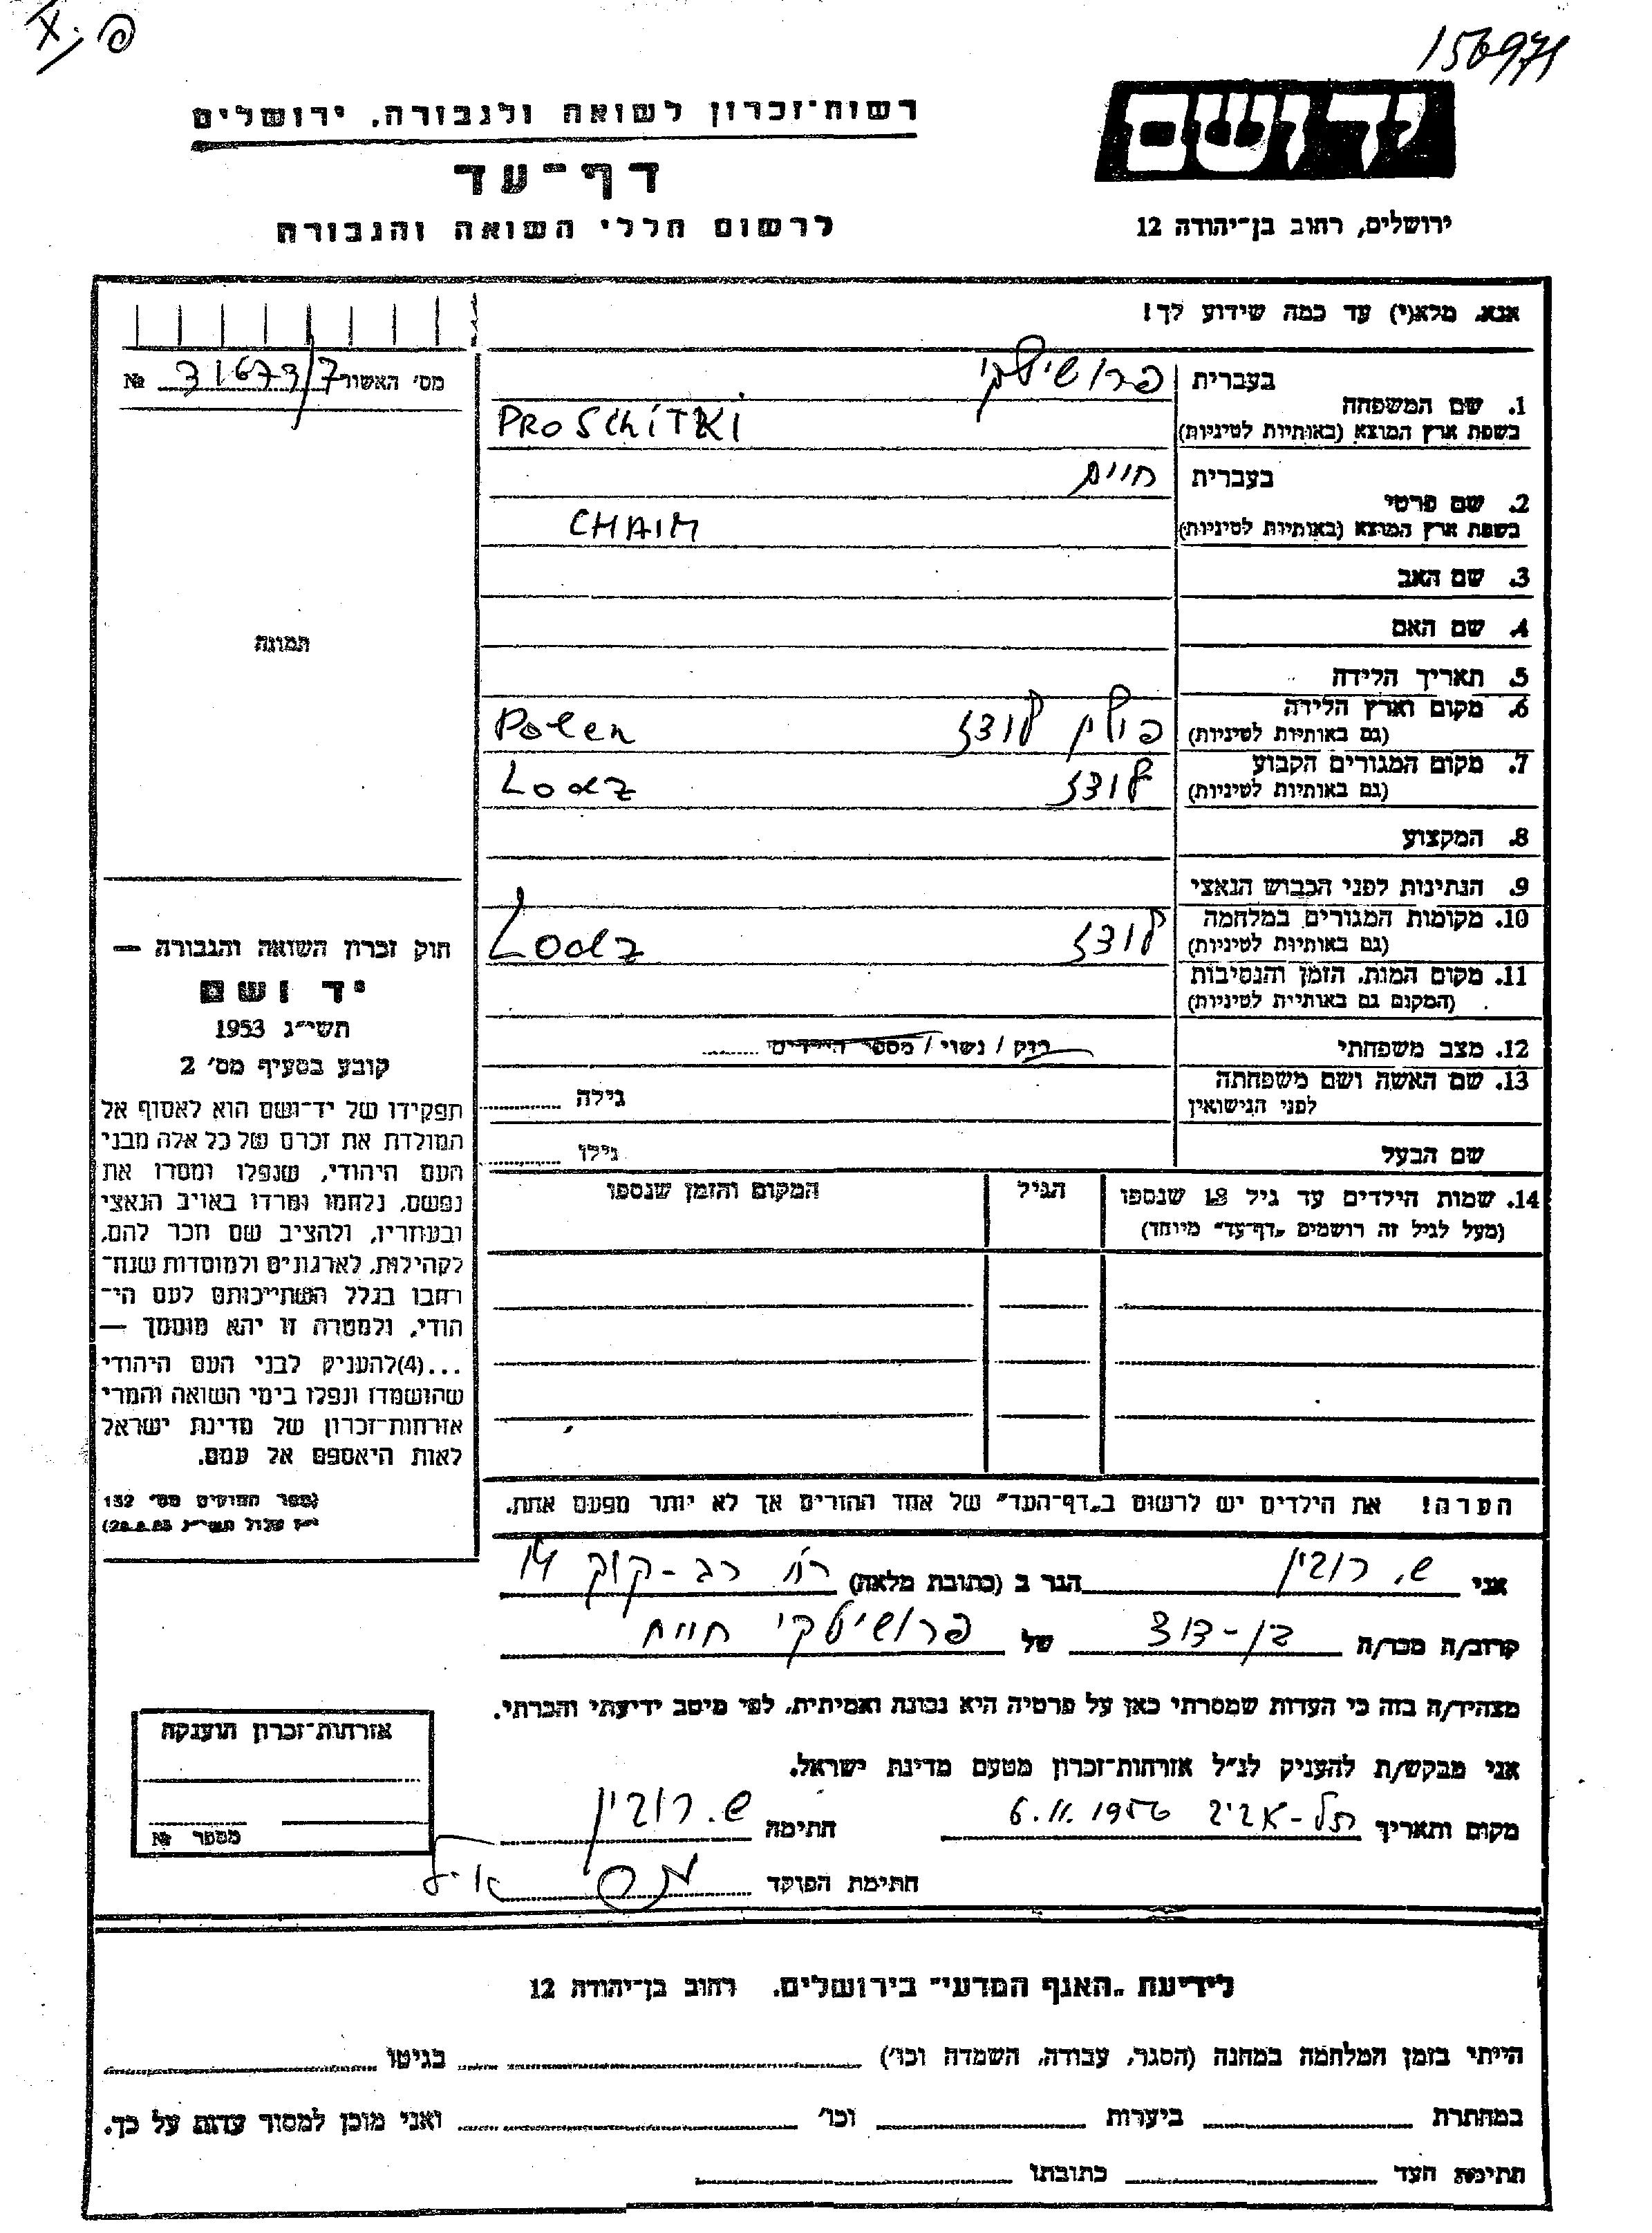 פ. X
156971
יד ושם
רשות־זכרון לשואה ולגבורה, ירושלים
דף־עד
לרשום חללי השואה והגבורה
ירושלים, רחוב בן־יהודה 12
אנא, מלא(י) עד כמה שידוע לך!
מס׳ האשור 31673/7 №
1. שם המשפחה בעברית פרושיצקי
בשפת ארץ המוצא (באותיות לטיניות) PROSCHITZKI
2. שם פרטי בעברית חיים
בשפת ארץ המוצא (באותיות לטיניות) CHAIM
3. שם האב
4. שם האם
תמונה
5. תאריך הלידה
6. מקום וארץ הלידה (גם באותיות לטיניות) פולין לודז Polen
7. מקום המגורים הקבוע (גם באותיות לטיניות) לודז Lodz
8. המקצוע
9. הנתינות לפני הכבוש הנאצי
10. מקומות המגורים במלחמה (גם באותיות לטיניות) לודז Lodz
11. מקום המות, הזמן והנסיבות (המקום גם באותיות לטיניות)
12. מצב משפחתי רווק / נשוי / מספר הילדים
13. שם האשה ושם משפחתה לפני הנישואין גילה
שם הבעל גילו
14. שמות הילדים עד גיל 18 שנספו הגיל המקום והזמן שנספו
(מעל לגיל זה רושמים „דף־עד״ מיוחד)
חוק זכרון השואה והגבורה —
יד ושם
תשי״ג 1953
קובע בסעיף מס׳ 2
תפקידו של יד־ושם הוא לאסוף אל
המולדת את זכרם של כל אלה מבני
העם היהודי, שנפלו ומסרו את
נפשם, נלחמו ומרדו באויב הנאצי
ובעוזריו, ולהציב שם וזכר להם,
לקהילות, לארגונים ולמוסדות שנח־
רובו בגלל השתייכותם לעם הי־
הודי, ולמטרה זו יהא מוסמך —
...(4)להעניק לבני העם היהודי
שהושמדו ונפלו בימי השואה והמרי
אזרחות־זכרון של מדינת ישראל
לאות היאספם אל עמם.
(ספר החוקים מס׳ 132
י״ז אלול תשי״ג 28.8.53)
הערה! את הילדים יש לרשום ב„דף־העד״ של אחד ההורים אך לא יותר מפעם אחת.
אני ש. רובין הגר ב (כתובת מלאה) רח׳ רב-קוק 14
קרוב/ה מכר/ה בן-דוד של פרושיצקי חיים
מצהיר/ה בזה כי העדות שמסרתי כאן על פרטיה היא נכונה ואמיתית, לפי מיטב ידיעתי והכרתי.
אני מבקש/ת להעניק לנ״ל אזרחות־זכרון מטעם מדינת ישראל.
מקום ותאריך תל-אביב 6.11.1956 חתימה ש. רובין
חתימת הפוקד
אזרחות־זכרון הוענקה
מספר №
לידיעת „האגף המדעי״ בירושלים, רחוב בן־יהודה 12
הייתי בזמן המלחמה במחנה (הסגר, עבודה, השמדה וכו׳) בגיטו
במחתרת ביערות וכו׳ ואני מוכן למסור עדות על כך.
חתימת העד כתובתו